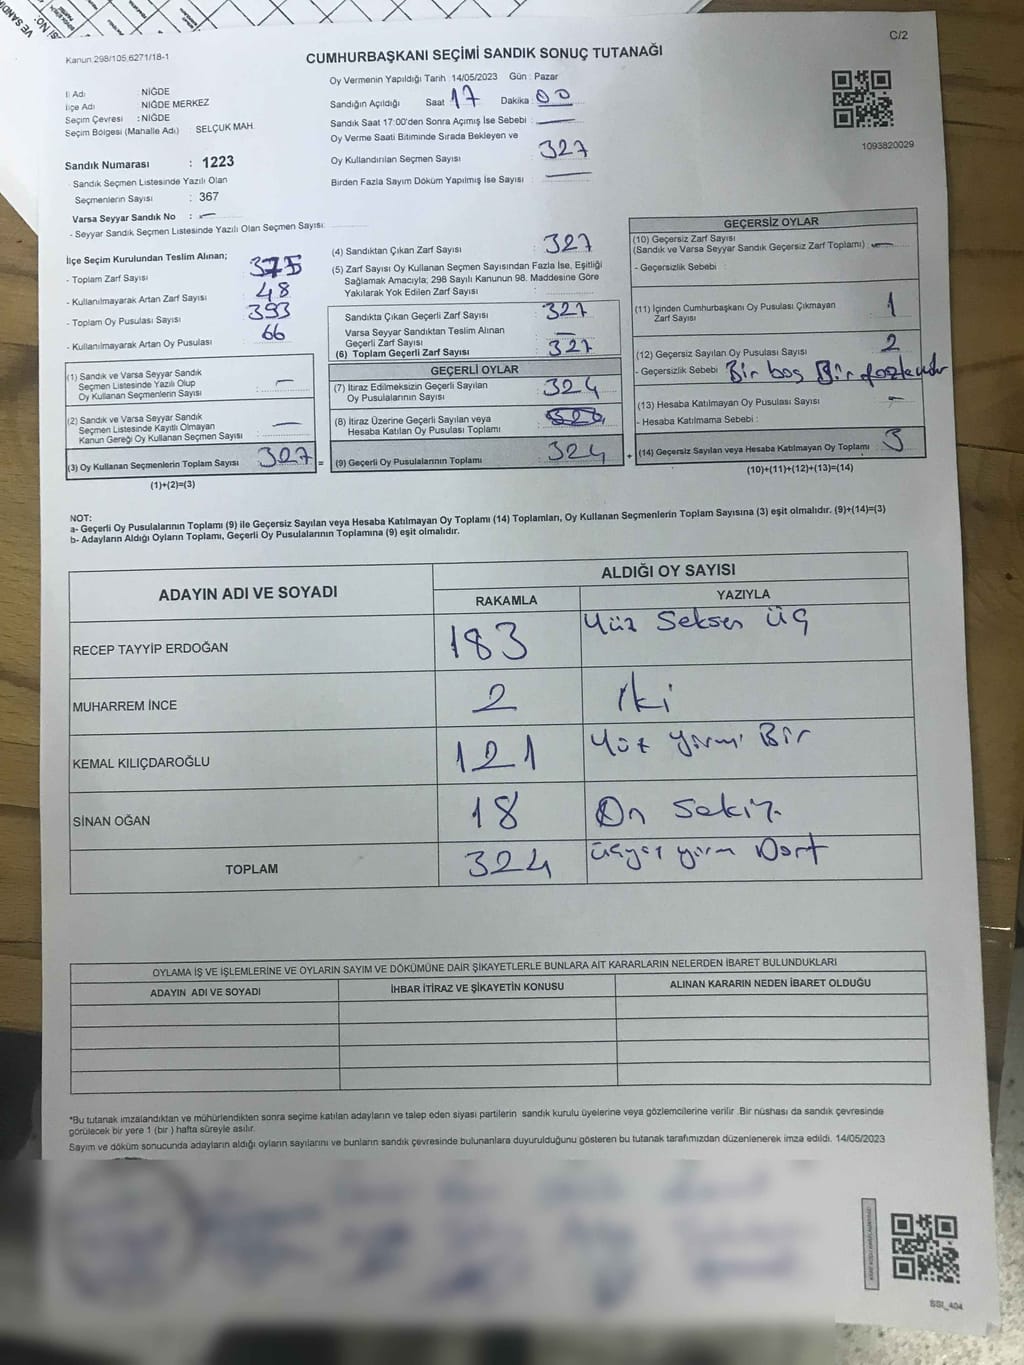 C/2
Kanun.298/105,6271/18-1
CUMHURBAŞKANI SEÇİMİ SANDIK SONUÇ TUTANAĞI
Oy Vermenin Yapıldığı Tarih 14/05/2023 Gün : Pazar
İl Adı : NİĞDE
İlçe Adı : NİĞDE MERKEZ
Seçim Çevresi : NİĞDE
Seçim Bölgesi (Mahalle Adı) : SELÇUK MAH.
Sandığın Açıldığı Saat 17 Dakika : 00
Sandık Saat 17:00'den Sonra Açımış İse Sebebi :
Oy Verme Saati Bitiminde Sırada Bekleyen ve
Oy Kullandırılan Seçmen Sayısı : 327
Birden Fazla Sayım Döküm Yapılmış İse Sayısı :
1093820029
Sandık Numarası : 1223
- Sandık Seçmen Listesinde Yazılı Olan
Seçmenlerin Sayısı : 367
Varsa Seyyar Sandık No : -
- Seyyar Sandık Seçmen Listesinde Yazılı Olan Seçmen Sayısı:
İlçe Seçim Kurulundan Teslim Alınan;
- Toplam Zarf Sayısı : 375
- Kullanılmayarak Artan Zarf Sayısı : 48
- Toplam Oy Pusulası Sayısı : 393
- Kullanılmayarak Artan Oy Pusulası : 66
(1) Sandık ve Varsa Seyyar Sandık
Seçmen Listesinde Yazılı Olup
Oy Kullanan Seçmenlerin Sayısı : -
(2) Sandık ve Varsa Seyyar Sandık
Seçmen Listesinde Kayıtlı Olmayan
Kanun Gereği Oy Kullanan Seçmen Sayısı : -
(3) Oy Kullanan Seçmenlerin Toplam Sayısı : 327 =
(1)+(2)=(3)
(4) Sandıktan Çıkan Zarf Sayısı : 327
(5) Zarf Sayısı Oy Kullanan Seçmen Sayısından Fazla İse, Eşitliği
Sağlamak Amacıyla; 298 Sayılı Kanunun 98. Maddesine Göre
Yakılarak Yok Edilen Zarf Sayısı :
Sandıkta Çıkan Geçerli Zarf Sayısı : 327
Varsa Seyyar Sandıktan Teslim Alınan
Geçerli Zarf Sayısı : -
(6) Toplam Geçerli Zarf Sayısı : 327
GEÇERLİ OYLAR
(7) İtiraz Edilmeksizin Geçerli Sayılan
Oy Pusulalarının Sayısı : 324
(8) İtiraz Üzerine Geçerli Sayılan veya
Hesaba Katılan Oy Pusulası Toplamı :
(9) Geçerli Oy Pusulalarının Toplamı : 324 +
GEÇERSİZ OYLAR
(10) Geçersiz Zarf Sayısı
(Sandık ve Varsa Seyyar Sandık Geçersiz Zarf Toplamı) : -
- Geçersizlik Sebebi :
(11) İçinden Cumhurbaşkanı Oy Pusulası Çıkmayan
Zarf Sayısı : 1
(12) Geçersiz Sayılan Oy Pusulası Sayısı : 2
- Geçersizlik Sebebi : Bir boş Bir fazladır
(13) Hesaba Katılmayan Oy Pusulası Sayısı : -
- Hesaba Katılmama Sebebi :
(14) Geçersiz Sayılan veya Hesaba Katılmayan Oy Toplamı : 3
(10)+(11)+(12)+(13)=(14)
NOT:
a- Geçerli Oy Pusulalarının Toplamı (9) ile Geçersiz Sayılan veya Hesaba Katılmayan Oy Toplamı (14) Toplamları, Oy Kullanan Seçmenlerin Toplam Sayısına (3) eşit olmalıdır. (9)+(14)=(3)
b- Adayların Aldığı Oyların Toplamı, Geçerli Oy Pusulalarının Toplamına (9) eşit olmalıdır.
ADAYIN ADI VE SOYADI
ALDIĞI OY SAYISI
RAKAMLA YAZIYLA
RECEP TAYYİP ERDOĞAN 183 Yüz Seksen Üç
MUHARREM İNCE 2 iki
KEMAL KILIÇDAROĞLU 121 Yüz yirmi Bir
SİNAN OĞAN 18 On Sekiz
TOPLAM 324 üçyüz yirm Dört
OYLAMA İŞ VE İŞLEMLERİNE VE OYLARIN SAYIM VE DÖKÜMÜNE DAİR ŞİKAYETLERLE BUNLARA AİT KARARLARIN NELERDEN İBARET BULUNDUKLARI
ADAYIN ADI VE SOYADI İHBAR İTİRAZ VE ŞİKAYETİN KONUSU ALINAN KARARIN NEDEN İBARET OLDUĞU
*Bu tutanak imzalandıktan ve mühürlendikten sonra seçime katılan adayların ve talep eden siyasi partilerin sandık kurulu üyelerine veya gözlemcilerine verilir .Bir nüshası da sandık çevresinde
görülecek bir yere 1 (bir ) hafta süreyle asılır.
Sayım ve döküm sonucunda adayların aldığı oyların sayılarını ve bunların sandık çevresinde bulunanlara duyurulduğunu gösteren bu tutanak tarafımızdan düzenlenerek imza edildi. 14/05/2023
SSI_404